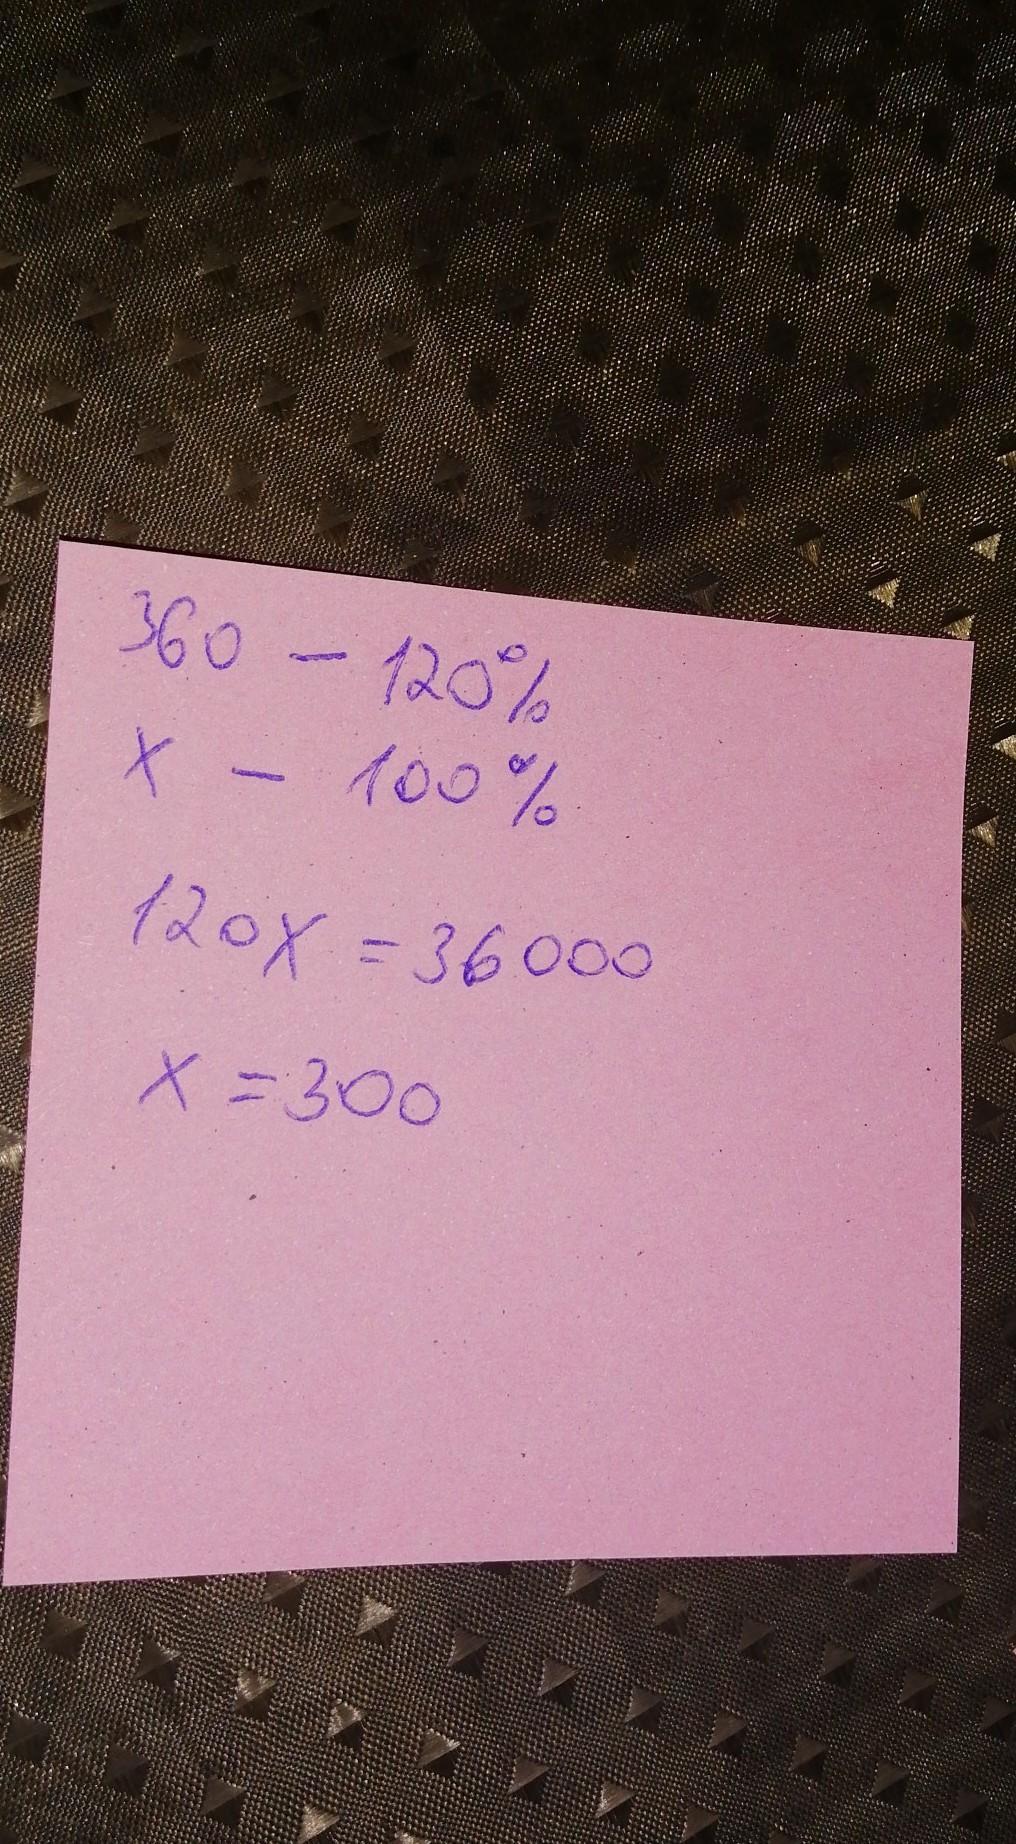 360 - 120%
x - 100%
120x = 36000
x = 300